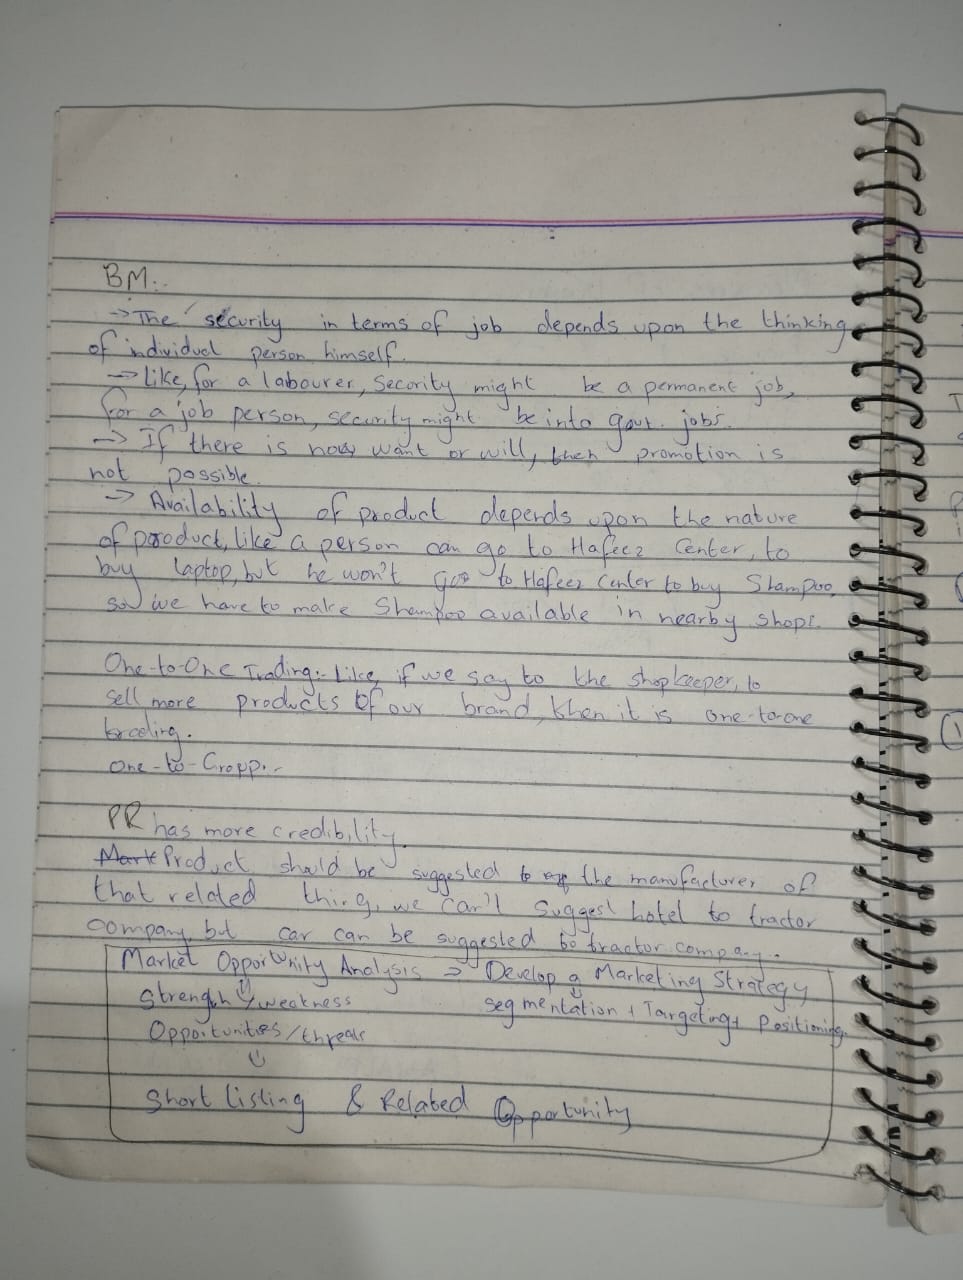 BM:-
→ The security in terms of job depends upon the thinking
of individual person himself.
→ Like, for a labourer, security might be a permanent job,
for a job person, security might be into govt. jobs.
→ If there is now want or will, then promotion is
not possible.
→ Availability of product depends upon the nature
of product, like a person can go to Hafeez Center, to
buy laptop, but he won't go to Hafeez Center to buy Shampoo,
so we have to make Shampoo available in nearby shops.
One-to-One Trading:- Like, if we say to the shopkeeper, to
sell more products of our brand, then it is one-to-one
trading.
One-to-Group:-
PR has more credibility.
Mark Product should be suggested to the manufacturer of
that related thing, we can't suggest hotel to tractor
company but car can be suggested to tractor company.
Market Opportunity Analysis → Develop a Marketing Strategy
Strength / weakness segmentation + Targeting + Positioning
Opportunities / threats
Short listing & Related Opportunity